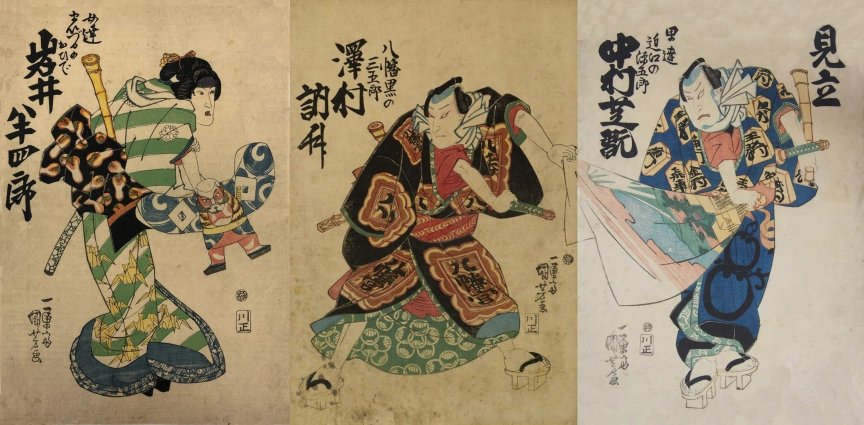 見立
男達
近江の
源五郎
中村芝翫
一勇斎
國芳画
川正
八幡黒の
三五郎
澤村
訥升
八幡黒
一勇斎
國芳画
川正
女達
岩井
半四郎
一勇斎
國芳画
川正